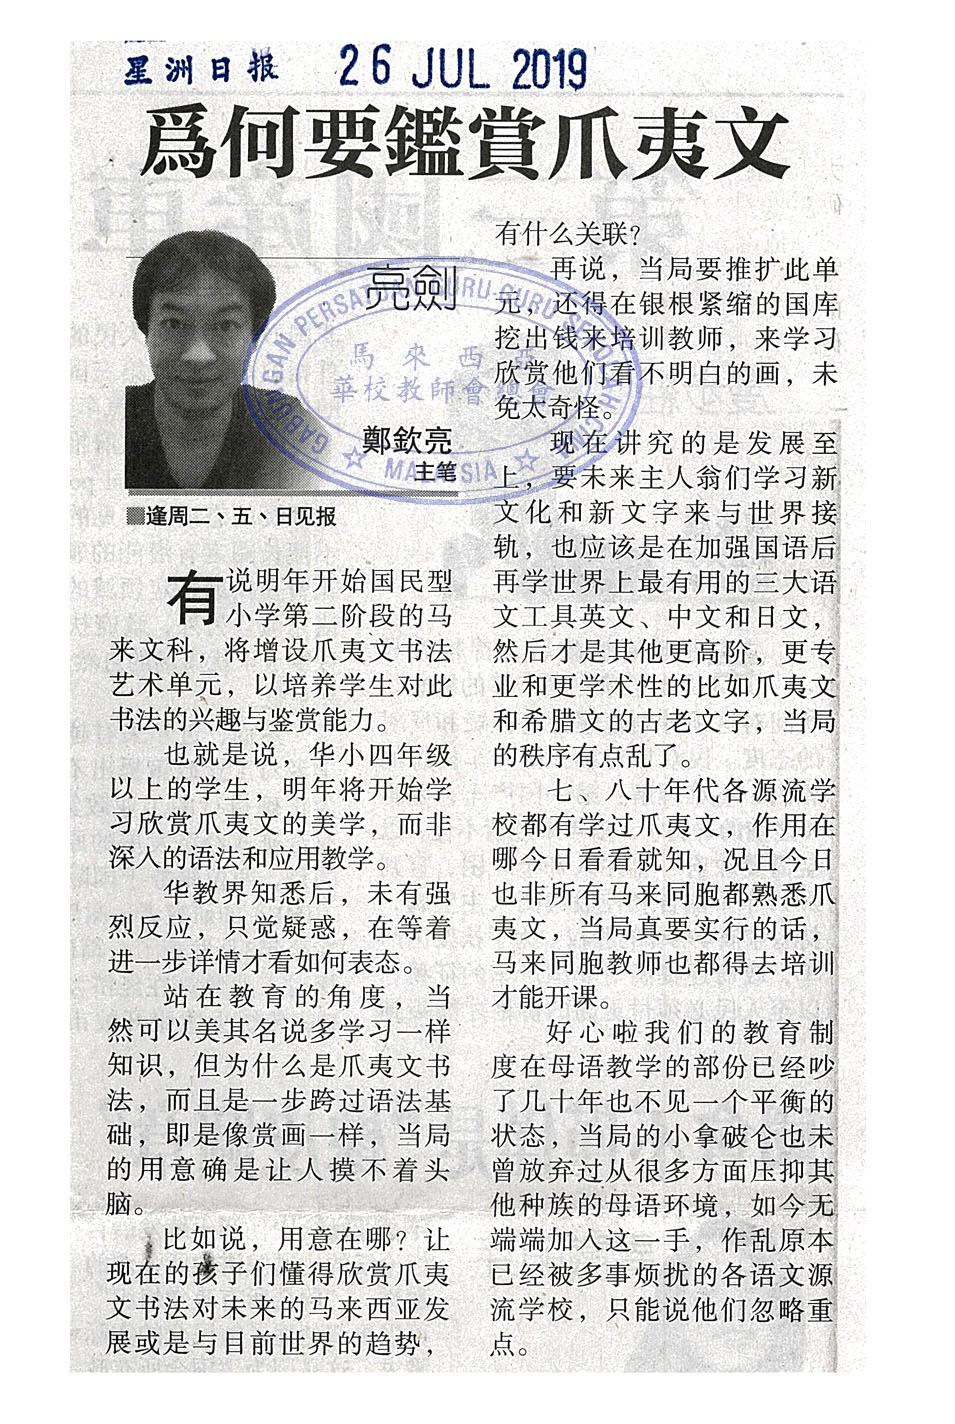 星洲日报
26 JUL 2019
爲何要鑑賞爪夷文
亮劍
鄭欽亮
主笔
■逢周二、五、日见报
GABUNGAN PERSATUAN GURU-GURU SEKOLAH CINA
馬來西亞
華校教師會總會
MALAYSIA
有说明年开始国民型
小学第二阶段的马
来文科，将增设爪夷文书法
艺术单元，以培养学生对此
书法的兴趣与鉴赏能力。
也就是说，华小四年级
以上的学生，明年将开始学
习欣赏爪夷文的美学，而非
深入的语法和应用教学。
华教界知悉后，未有强
烈反应，只觉疑惑，在等着
进一步详情才看如何表态。
站在教育的角度，当
然可以美其名说多学习一样
知识，但为什么是爪夷文书
法，而且是一步跨过语法基
础，即是像赏画一样，当局
的用意确是让人摸不着头
脑。
比如说，用意在哪？让
现在的孩子们懂得欣赏爪夷
文书法对未来的马来西亚发
展或是与目前世界的趋势，
有什么关联？
再说，当局要推扩此单
元，还得在银根紧缩的国库
挖出钱来培训教师，来学习
欣赏他们看不明白的画，未
免太奇怪。
现在讲究的是发展至
上，要未来主人翁们学习新
文化和新文字来与世界接
轨，也应该是在加强国语后
再学世界上最有用的三大语
文工具英文、中文和日文，
然后才是其他更高阶，更专
业和更学术性的比如爪夷文
和希腊文的古老文字，当局
的秩序有点乱了。
七、八十年代各源流学
校都有学过爪夷文，作用在
哪今日看看就知，况且今日
也非所有马来同胞都熟悉爪
夷文，当局真要实行的话，
马来同胞教师也都得去培训
才能开课。
好心啦我们的教育制
度在母语教学的部份已经吵
了几十年也不见一个平衡的
状态，当局的小拿破仑也未
曾放弃过从很多方面压抑其
他种族的母语环境，如今无
端端加入这一手，作乱原本
已经被多事烦扰的各语文源
流学校，只能说他们忽略重
点。